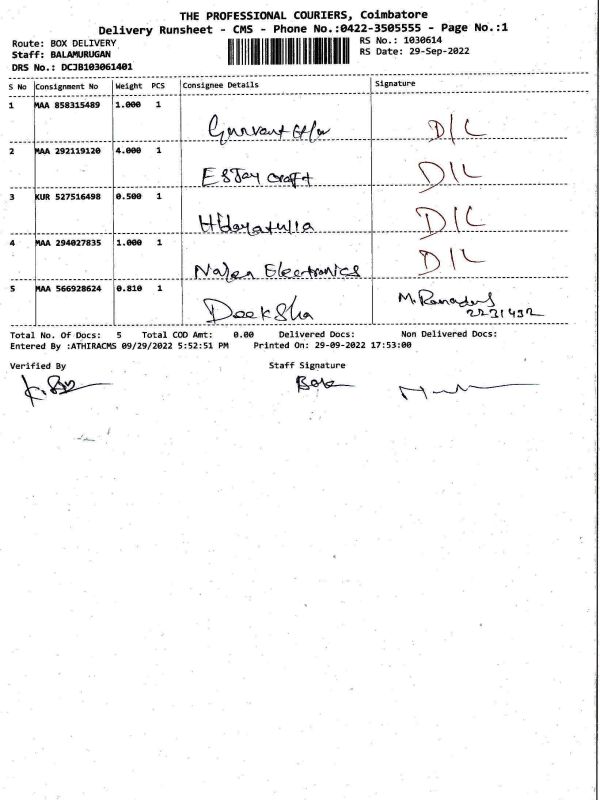 THE PROFESSIONAL COURIERS, Coimbatore
Delivery Runsheet - CMS - Phone No.:0422-3505555 - Page No.:1
Route: BOX DELIVERY
Staff: BALAMURUGAN
DRS No.: DCJB103061401
RS No.: 1030614
RS Date: 29-Sep-2022
S No Consignment No Weight PCS Consignee Details Signature
1 MAA 858315489 1.000 1
D/C
2 MAA 292119120 4.000 1
EsJay craft D/C
3 KUR 527516498 0.500 1
Hidayatulla D/C
4 MAA 294027835 1.000 1
Electronics D/C
5 MAA 566928624 0.810 1
Deeksha M.
Total No. Of Docs: 5 Total COD Amt: 0.00 Delivered Docs: Non Delivered Docs:
Entered By :ATHIRACMS 09/29/2022 5:52:51 PM Printed On: 29-09-2022 17:53:00
Verified By Staff Signature